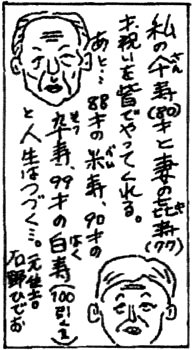 私の傘寿(80)才と妻の㐂寿(77)
さん
き
才祝いを皆でやってくれる。
あと…88才の米寿、90才の
べい
卆寿、99才の白寿(100引く一)
そつ
はく
と人生はつづく…。元住吉。
石野ひでお